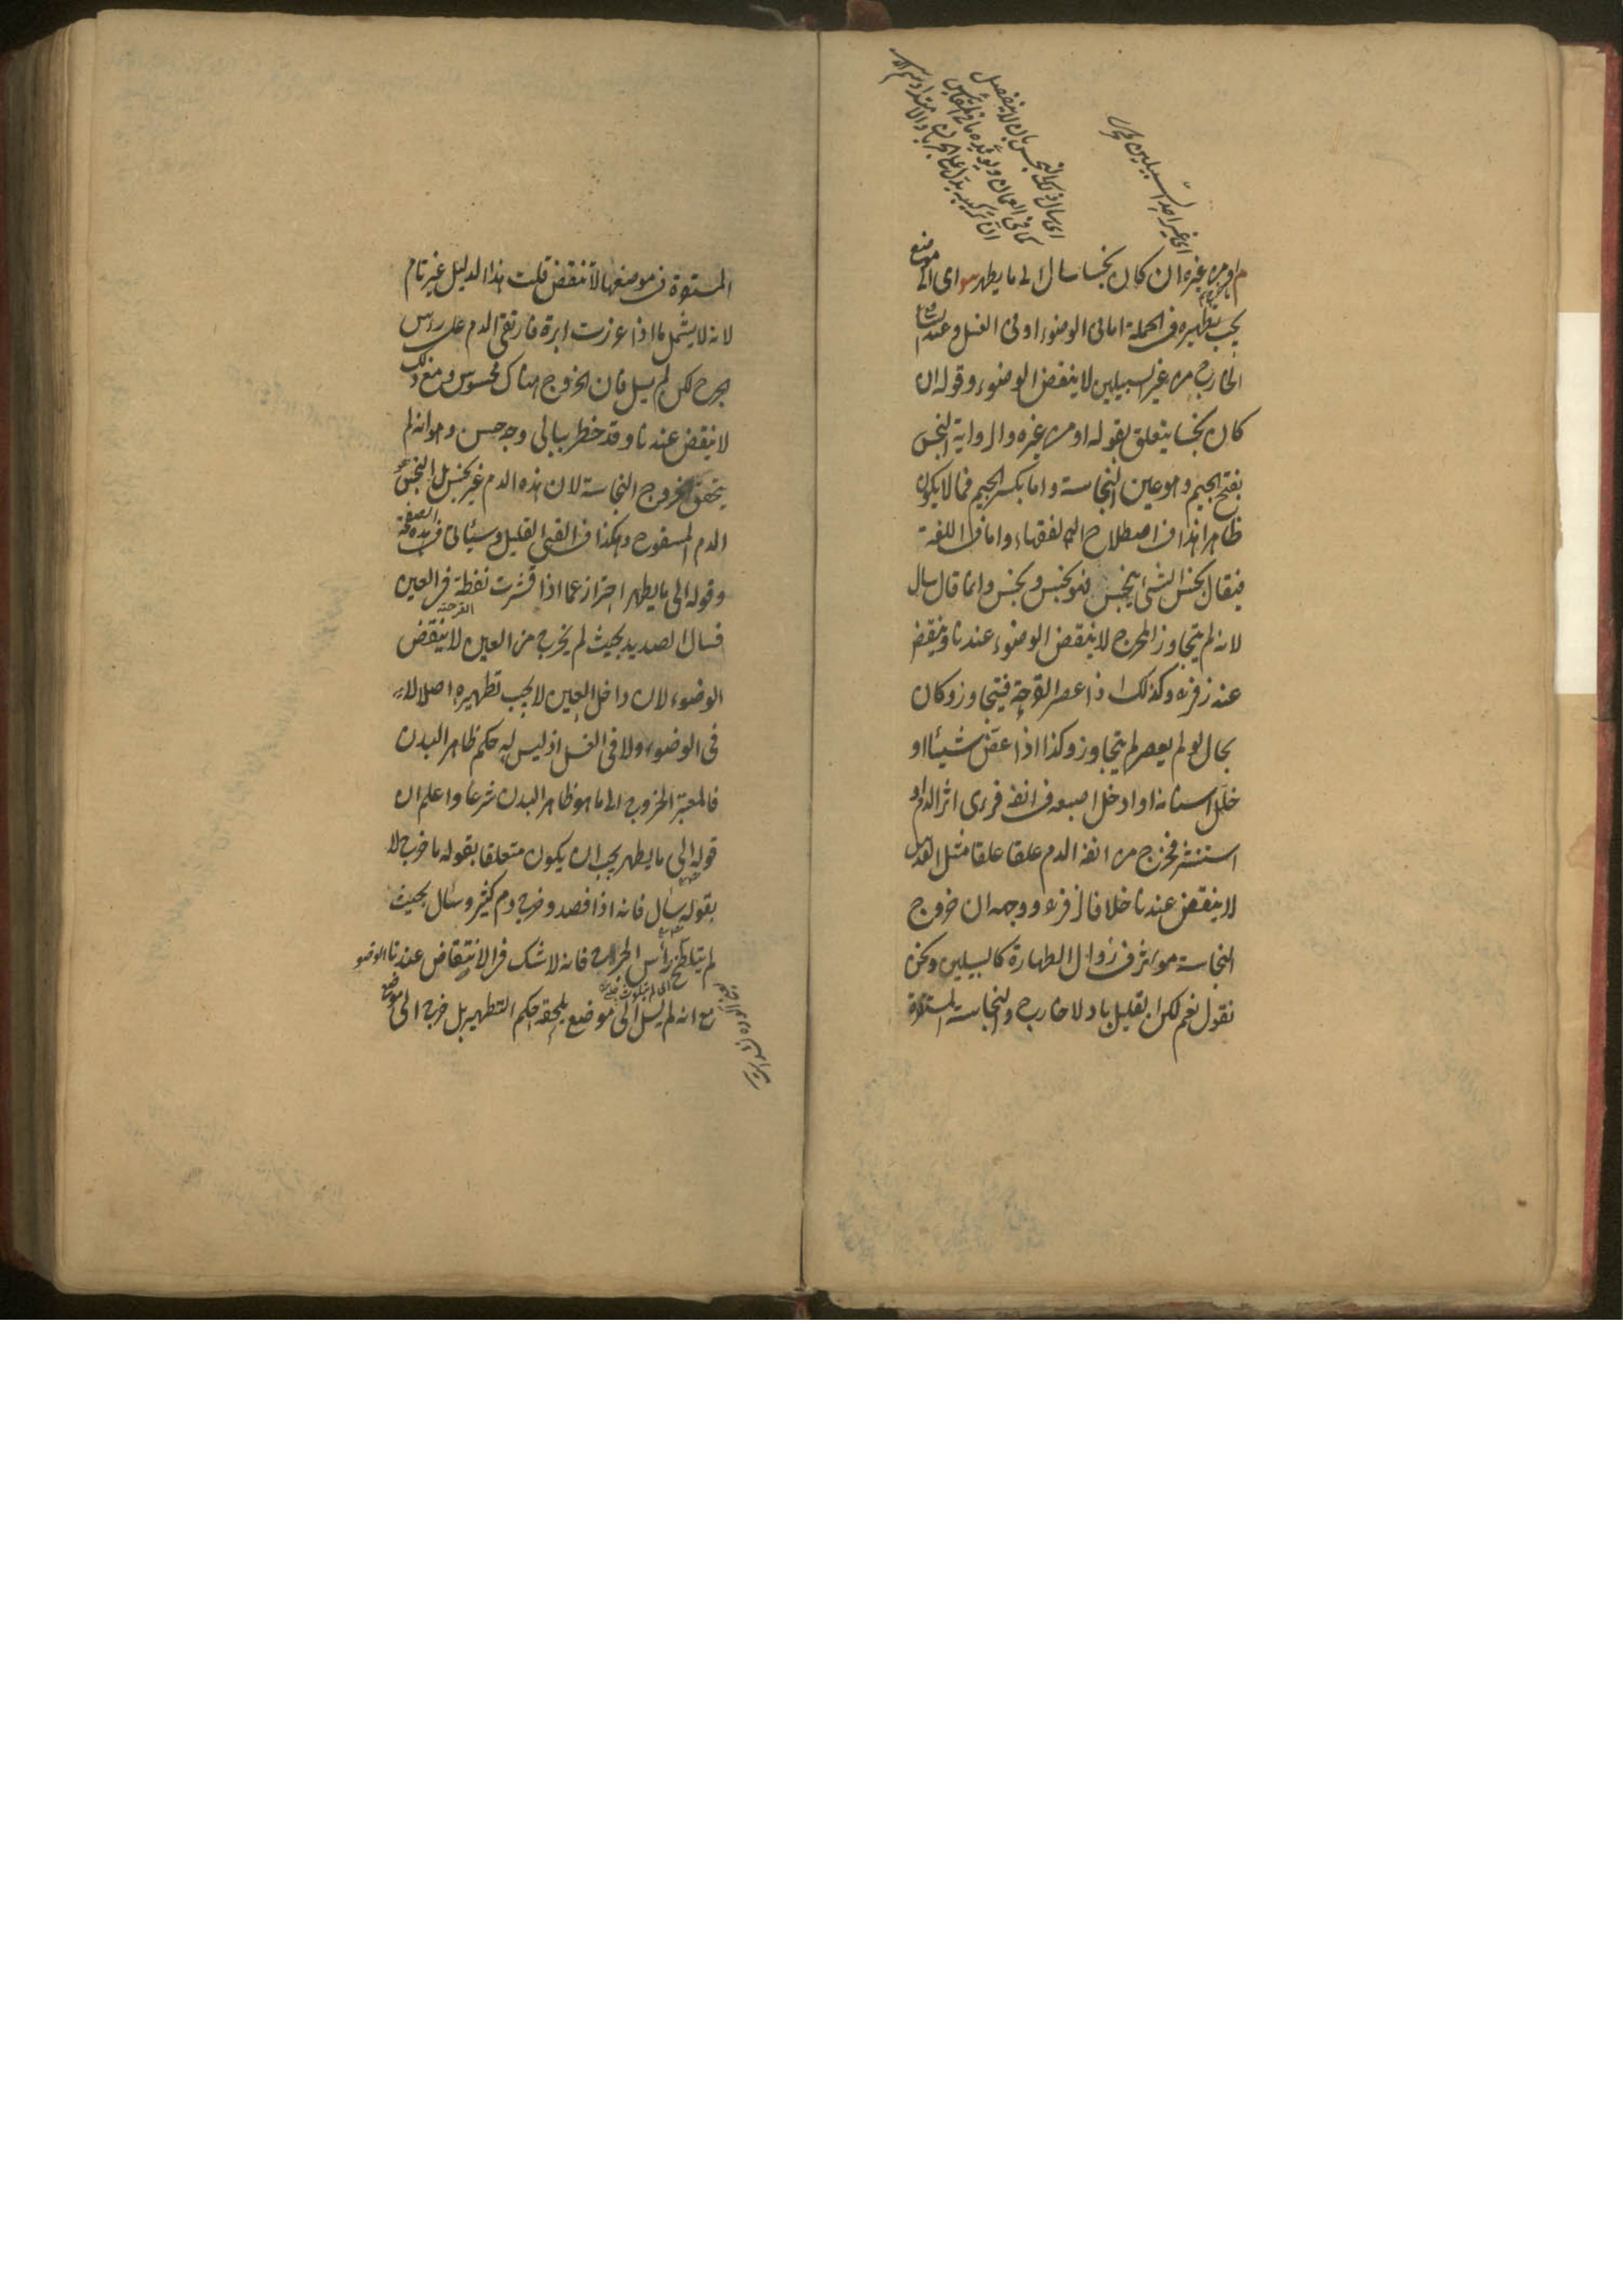 اى غير احد السبيلين
اى سال ذلك النجس بان لا ينفصل
م او من غيره ان كان نجسا سال الى ما يطهر ش اى الى موضع
يجب تطهيره فى الجملة اما فى الوضوء او فى الغسل وعند الشافعى
الخارج من غير السبيلين لا ينقض الوضوء وقوله ان
كان نجسا يتعلق بقوله او من غيره والرواية النجس
بفتح الجيم وهو عين النجاسة واما بكسر الجيم فما لا يكون
طاهرا هذا فى اصطلاح الفقهاء واما فى اللغة
فيقال نجس الشئ ينجس فهو نجس ونجس وانما قال سال
لانه لم يتجاوز المخرج لا ينقض الوضوء عندنا وينقض
عند زفر وكذلك اذا عصر القرحة فيتجاوز وكان
بحال لو لم يعصر لم يتجاوز وكذا اذا عض شيئا او
خلل اسنانه او ادخل اصبعه فى انفه فرى اثر الدم او
استنثر فخرج من انفه الدم علقا علقا مثل العدس
لا ينقض عندنا خلافا لزفر ووجهه ان خروج
النجاسة مؤثر فى زوال الطهارة كالسبيلين ونحن
نقول نعم لكن القليل باد لا خارج والنجاسة المستقرة
المستقرة فى موضعها لا تنقض قلت هذا الدليل غير تام
لانه لا يشمل ما اذا غرزت ابرة فارتقى الدم على رأس
الجرح لكن لم يسل فان الخروج هناك محسوس ومع ذلك
لا ينقض عندنا وقد خطر ببالى وجه حسن وهو انه لم
يتحقق خروج النجاسة لان هذه الدم غير نجس بل النجس هو
الدم المسفوح وهكذا فى القئ القليل وسيأتى فى هذه الصفحة
وقوله الى ما يطهر احتراز عما اذا قشرت نفطة فى العين
القرحة
فسال الصديد بحيث لم يخرج من العين لا ينقض
الوضوء لان داخل العين لا يجب تطهيره اصلا لا
فى الوضوء ولا فى الغسل اذ ليس له حكم ظاهر البدن
فالمعتبر الخروج الى ما هو ظاهر البدن شرعا واعلم ان
قوله الى ما يطهر يجب ان يكون متعلقا بقوله ما خرج لا
بقوله سال فانه اذا فصد وخرج دم كثير وسال بحيث
لم يتلطخ رأس الجرح فانه لا شك فى الانتقاض عندنا الوضو
مع انه لم يسل الى موضع يلحقه حكم التطهير بل خرج الى موضع